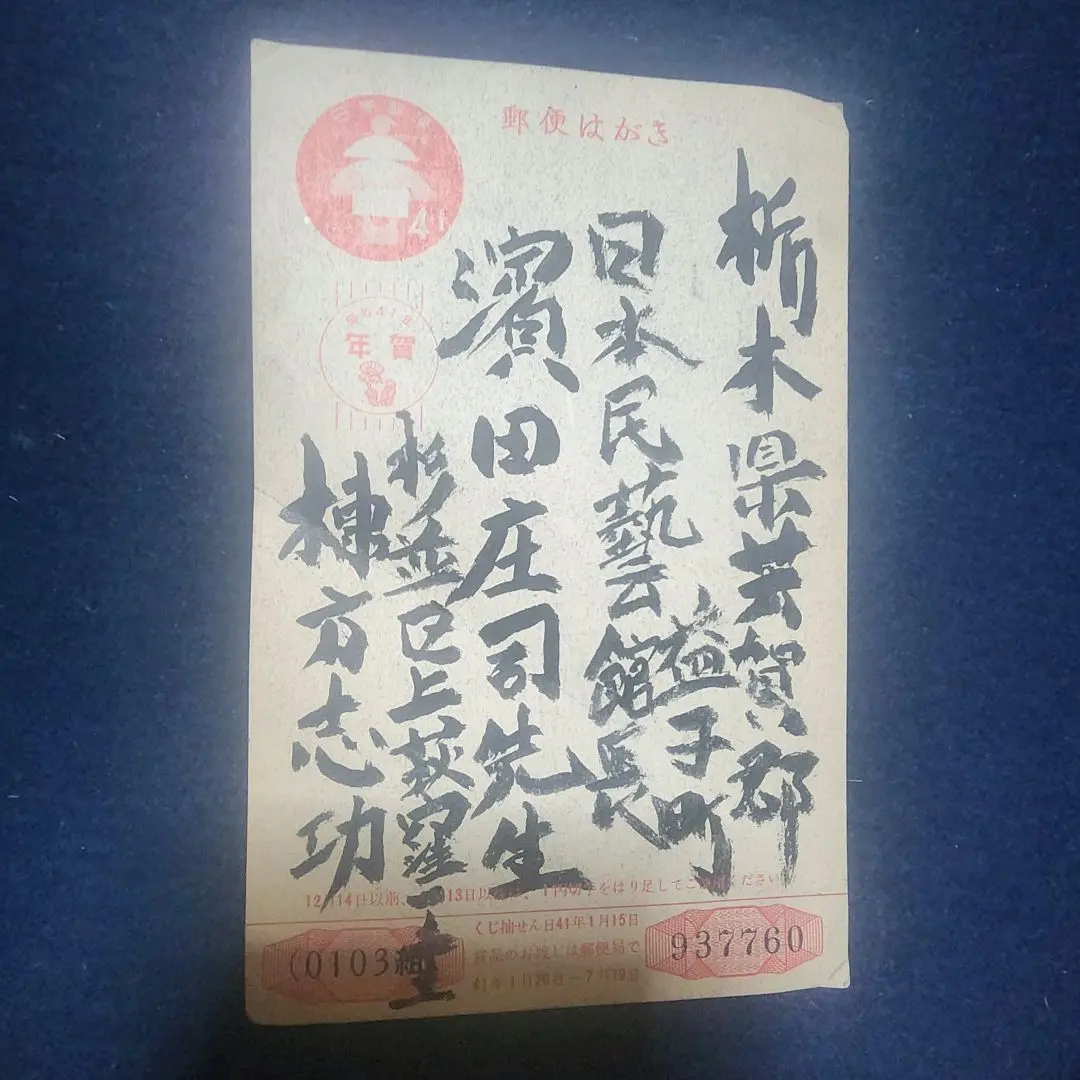 郵便はがき
日本郵便
41
昭和41年
年賀
栃木県芸賀郡
益子町
日本民藝館長
濱田庄司先生
杉並区上荻窪二
棟方志功
12月14日以前、
13日以
1円切手をはり足してご
ください
くじ抽せん日41年1月15日
賞品のお渡しは郵便局で
41年1月20日-7月19日
0103組
937760